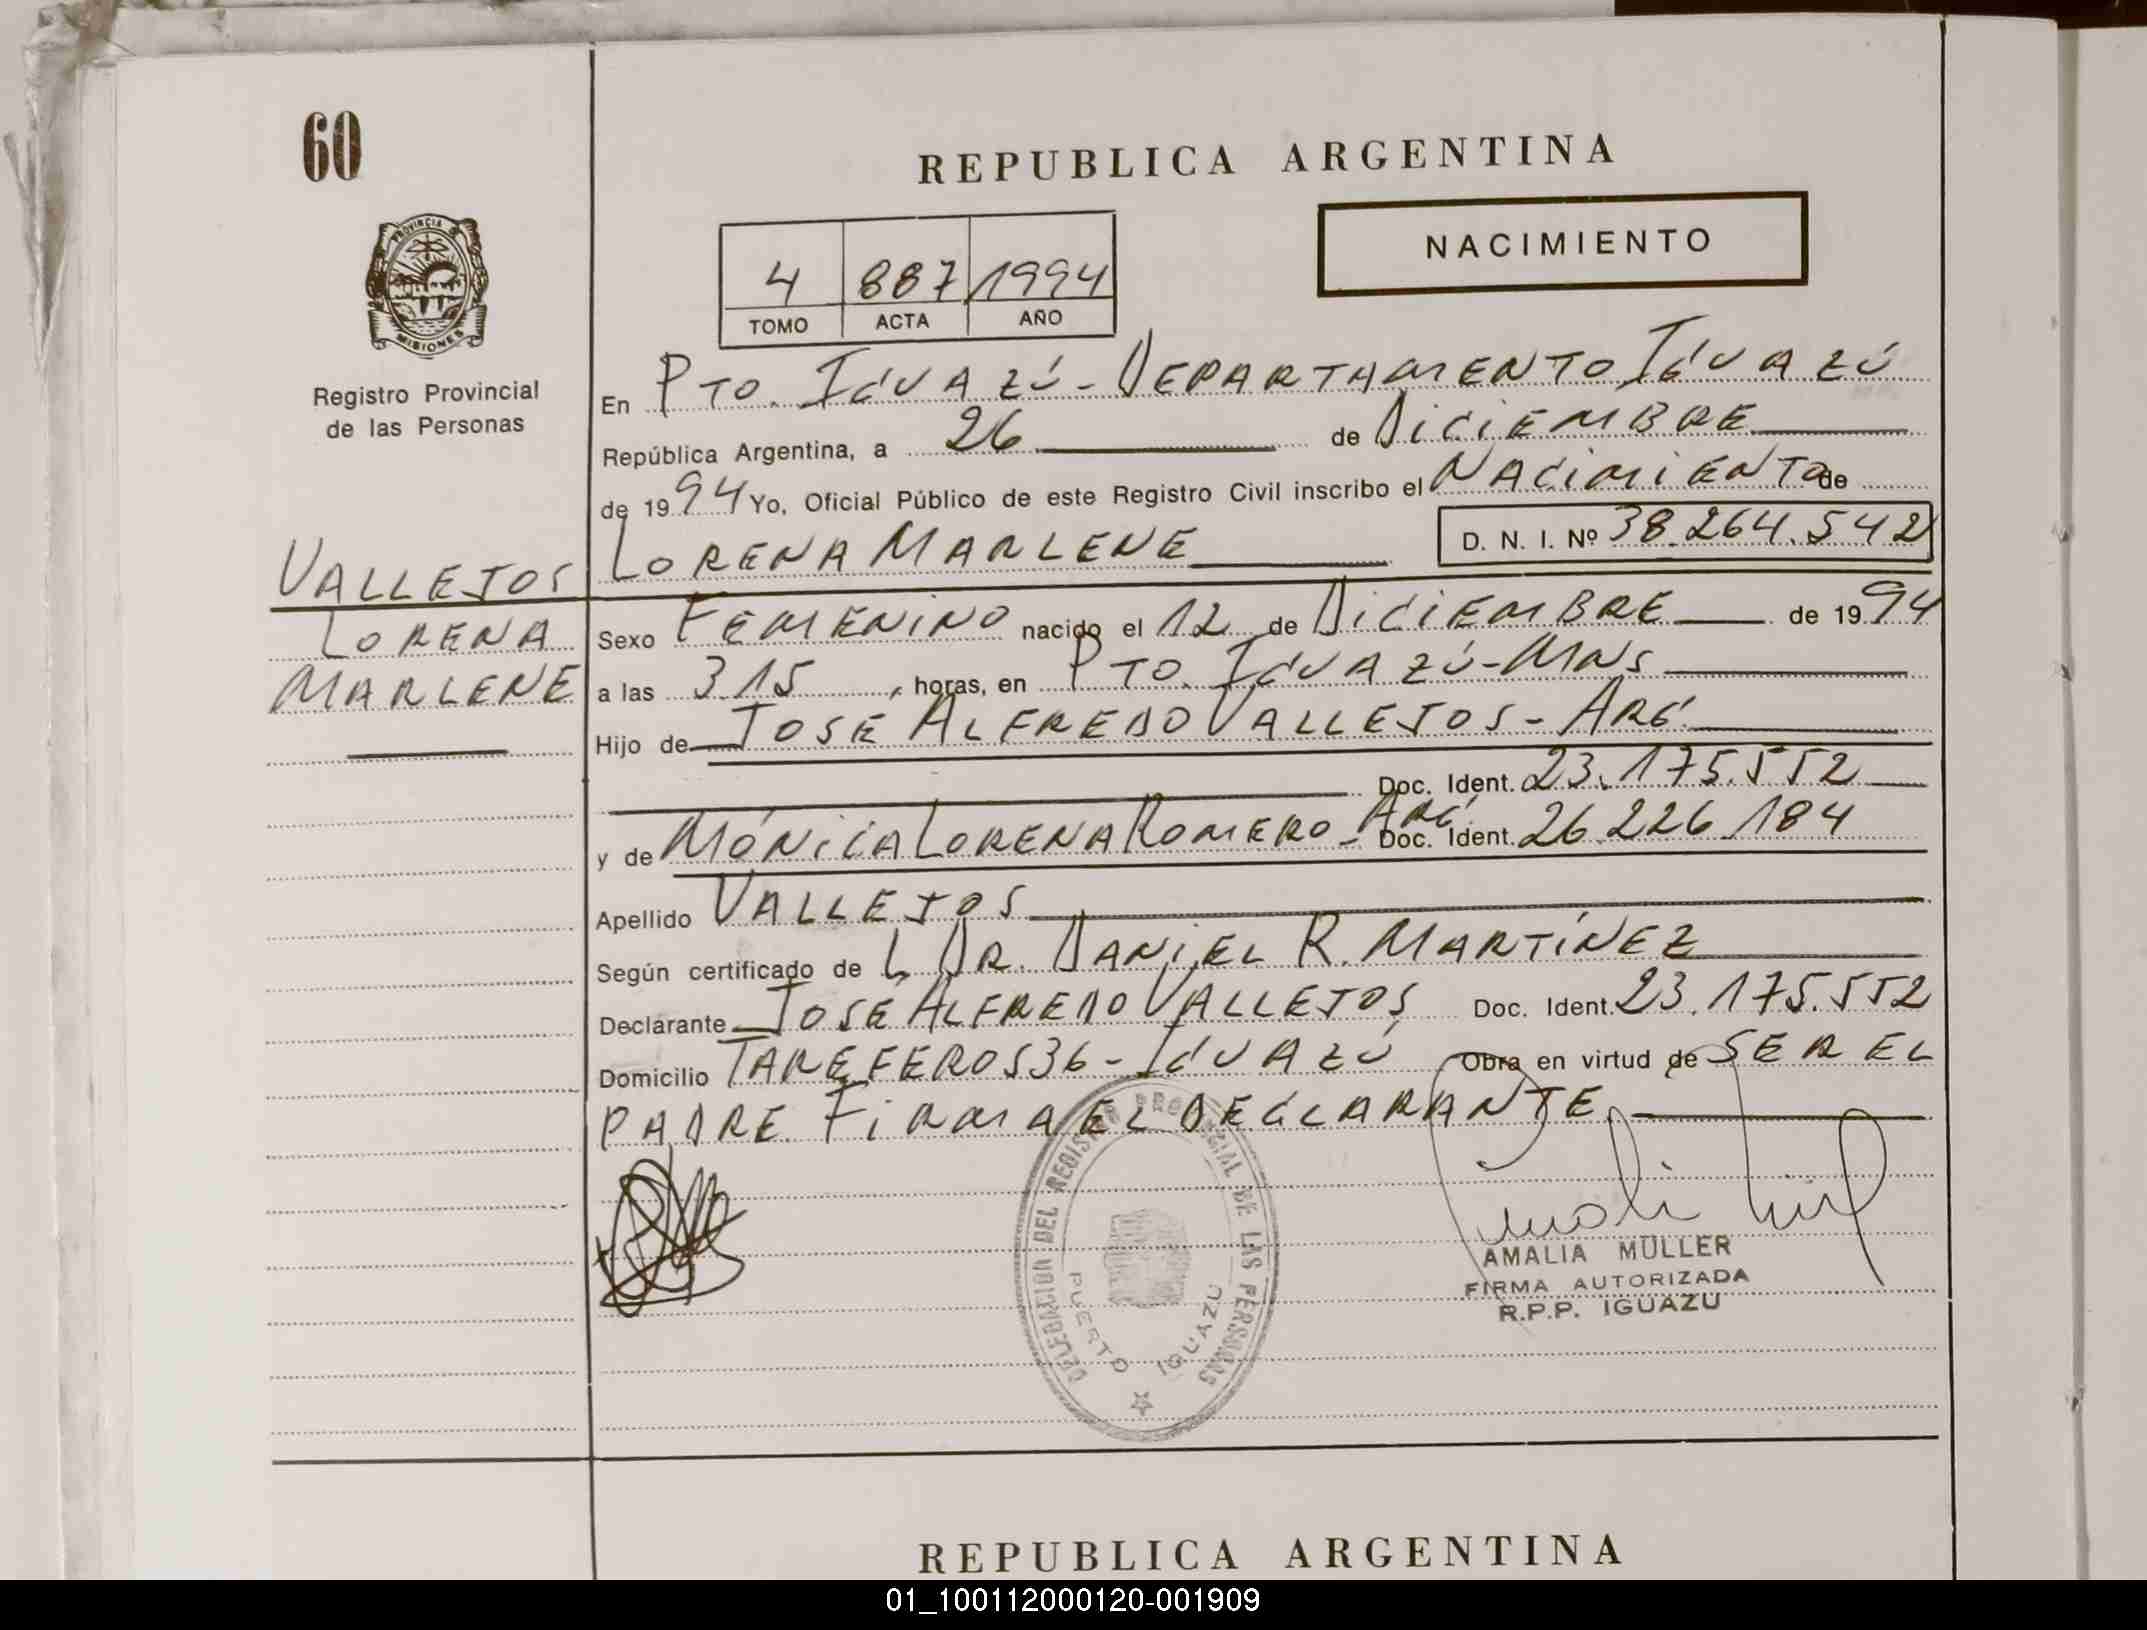 60
REPUBLICA ARGENTINA
NACIMIENTO
4 887 1994
TOMO ACTA AÑO
PROVINCIA DE
MISIONES
Registro Provincial
de las Personas
En PTO. IGUAZÚ - DEPARTAMENTO IGUAZÚ
República Argentina, a 26 de DICIEMBRE
de 1994 Yo, Oficial Público de este Registro Civil inscribo el NACIMIENTO de
LORENA MARLENE D. N. I. Nº 38.264.542
VALLEJOS
LORENA
MARLENE
Sexo FEMENINO nacido el 12 de DICIEMBRE de 1994
a las 3.15, horas, en PTO. IGUAZÚ - MNS
Hijo de JOSÉ ALFREDO VALLEJOS - ARG.
Doc. Ident. 23.175.552
y de MÓNICA LORENA ROMERO - ARG. Doc. Ident. 26.226.184
Apellido VALLEJOS
Según certificado de DR. DANIEL R. MARTÍNEZ
Declarante JOSÉ ALFREDO VALLEJOS Doc. Ident. 23.175.552
Domicilio TAREFEROS 36 - IGUAZÚ Obra en virtud de SER EL
PADRE. FIRMA EL DECLARANTE.
DELEGACION DEL REGISTRO PROVINCIAL DE LAS PERSONAS
PUERTO IGUAZU
AMALIA MÜLLER
FIRMA AUTORIZADA
R.P.P. IGUAZU
REPUBLICA ARGENTINA
01_100112000120-001909